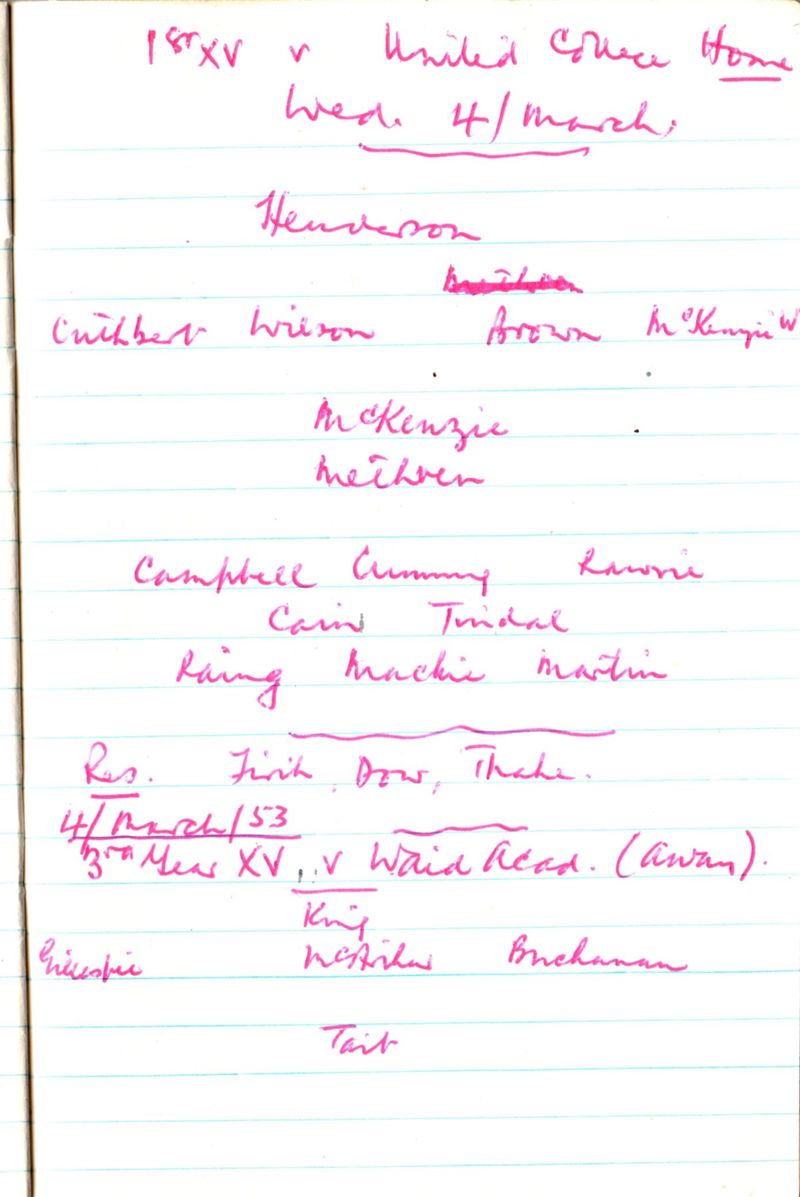 1st XV v United College Home
Wed. 4/March.
Henderson
Methven
Cuthbert Wilson Brown McKenzie W
McKenzie
Methven
Campbell Cumming Rawrie
Cairns Tindal
Raing Mackie Martin
Res. Firth, Dow, Thake.
4/March/53
3rd Year XV v Waid Acad. (Away).
King
Gillespie McArthur Buchanan
Tait